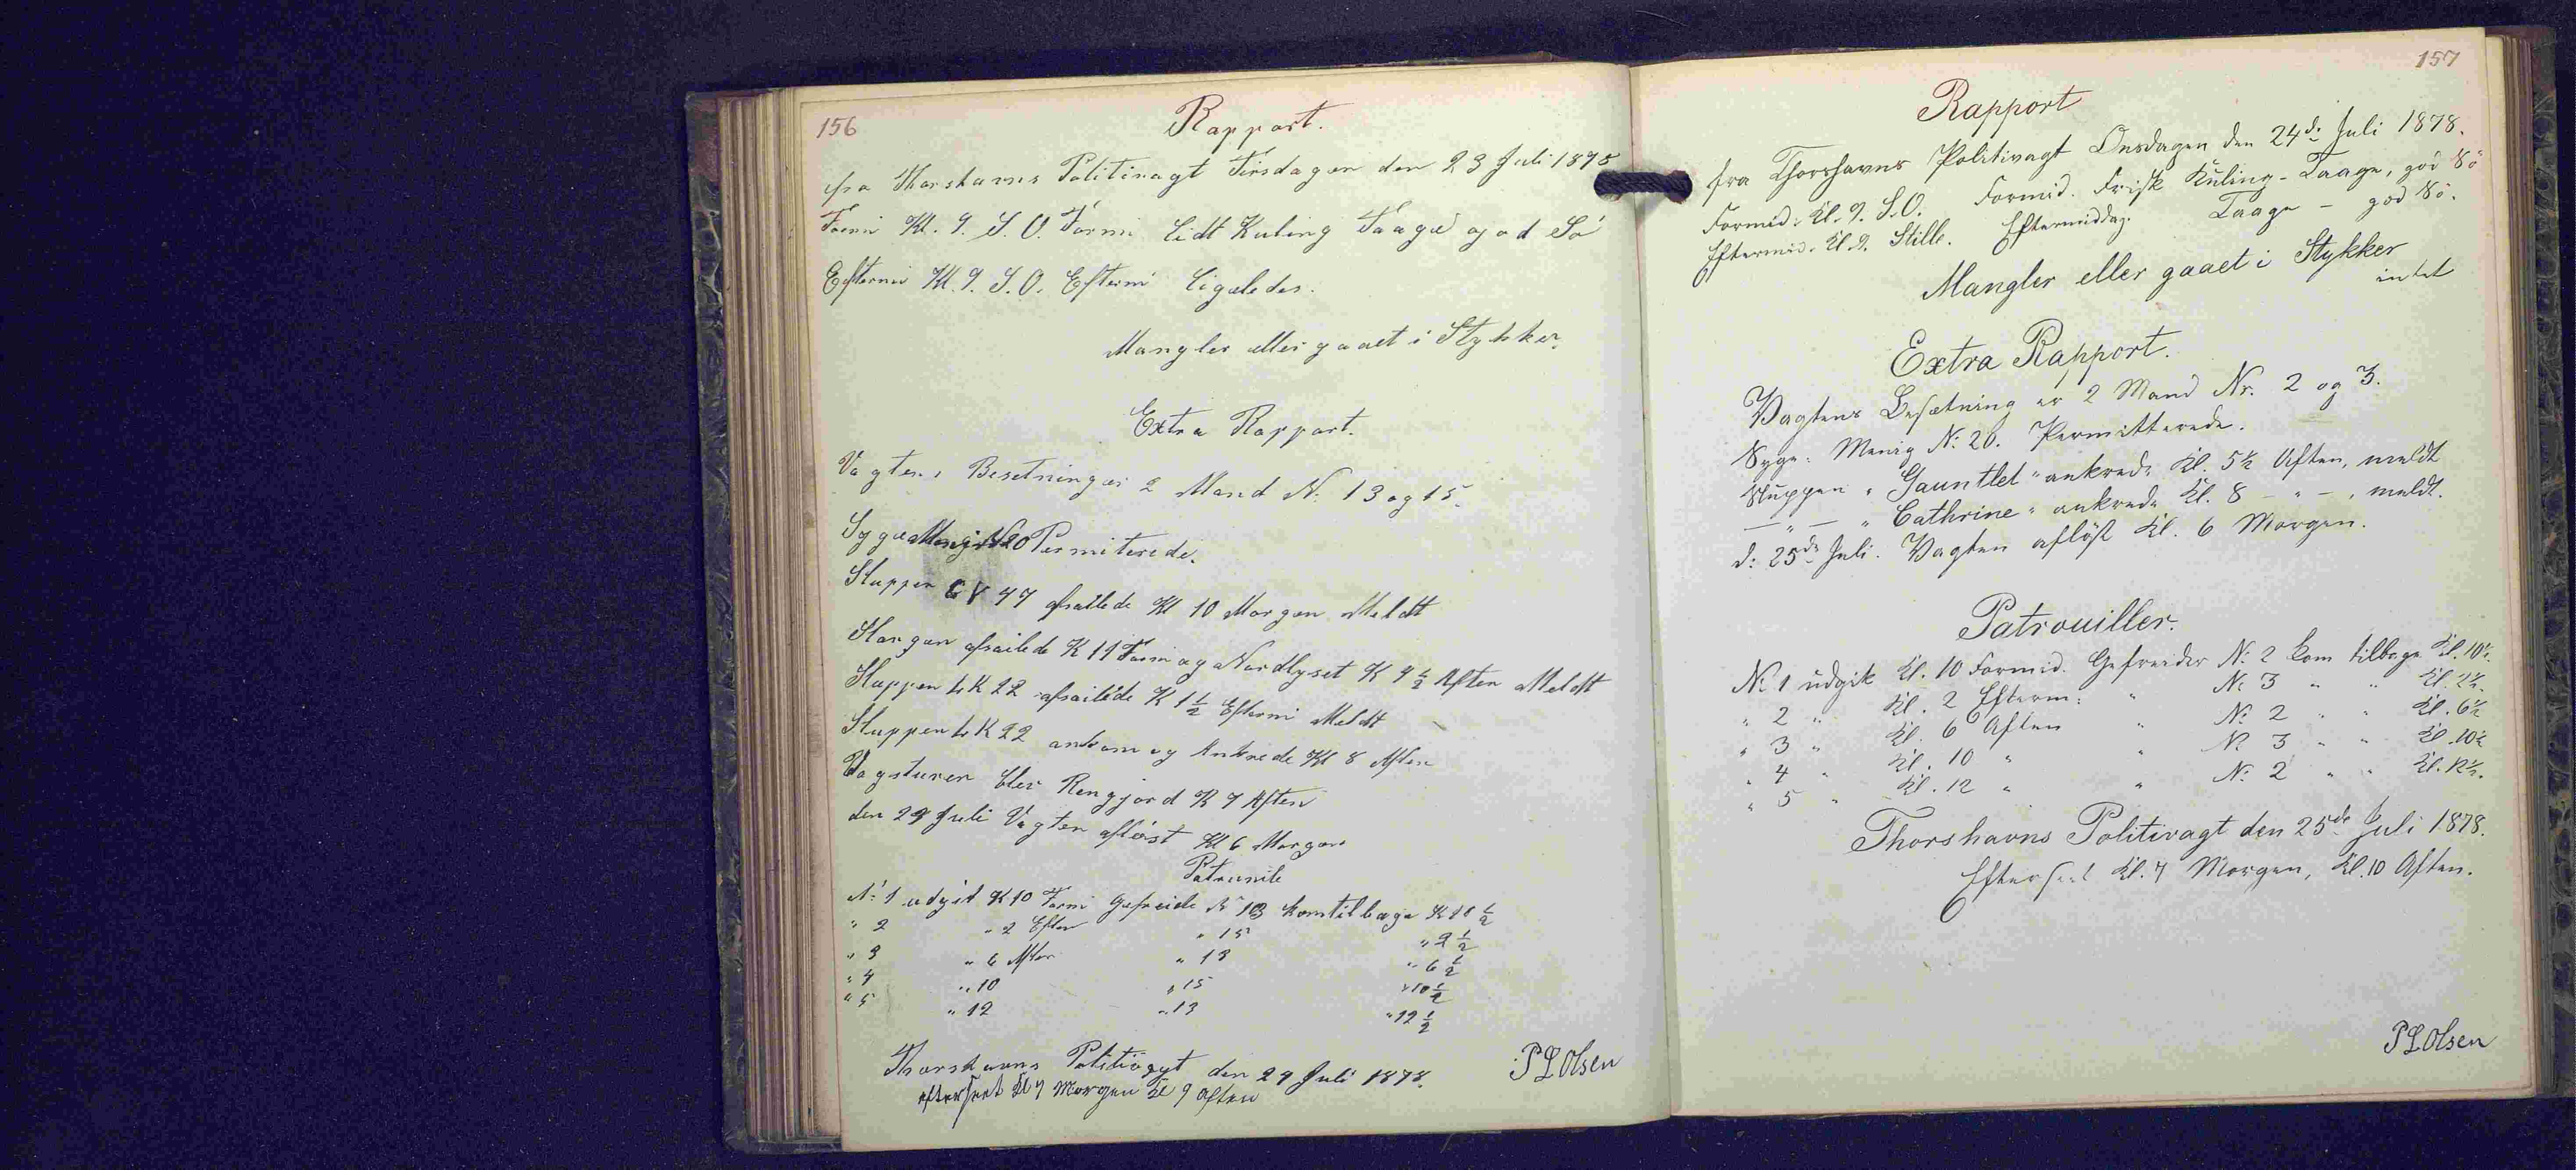 156
Rapport.
fra Thorshavns Politivagt Tirsdagen den 23 Juli 1878
Formi Kl. 9. S.O. Formi Lidt Kuling Taage god Sø
Eftermi Kl. 9. S.O. Eftermi ligeledes.
Mangler eller gaaet i Stykker.
Extra Rapport.
Vagtens Besetning er 2 Mand N: 13 og 15.
Syge Menig N 20 Permiterede.
Sluppen 47 afsailede Kl 10 Morgen Meldt
afsailede K 11 Form og Nordlyset K 4½ Aften Meldt
Sluppen 22 afsailede K 1½ Eftermi Meldt
Sluppen 22 ankom og Ankrede Kl 8 Aften
Vagsturen blev Rengjord K 7 Aften
den 24 Juli Vagten afløst Kl 6 Morgen
Patruile
N: 1 udgik K 10 Formi Gefreide N 13 kom tilbage K 10½
" 2 " 2 Efter " 15 " 2½
" 3 " 6 Aften " 13 " 6½
" 4 " 10 " 15 " 10½
" 5 " 12 " 13 " 12½
Thorshavns Politivagt den 24 Juli 1878.
PLOlsen
efterseet Kl 7 Morgen Kl 9 Aften
157
Rapport
fra Thorshavns Politivagt Onsdagen den 24d: Juli 1878.
Formid: Kl. 9. S.O. Formid. Frisk Kuling - Taage, god Sö
Eftermid. Kl. 9. Stille. Eftermiddag. Taage - god Sö.
Mangler eller gaaet i Stykker
intet
Extra Rapport.
Vagtens Besætning er 2 Mand Nr. 2 og 3.
Syge: Menig N: 20. Permitterede.
Sluppen "Gauntlet" ankrede Kl. 5½ Aften, meldt
— " — "Cathrine" ankrede Kl. 8 - " - , meldt.
d: 25de Juli. Vagten aflöst Kl. 6 Morgen.
Patrouiller.
N: 1 udgik Kl. 10 Formid. Gefreider N: 2 kom tilbage Kl. 10½.
" 2 " Kl. 2 Efterm: " N: 3 " " Kl. 2½.
" 3 " Kl. 6 Aften " N: 2 " " Kl. 6½
" 4 " Kl. 10 " " N: 3 " " Kl. 10½
" 5 " Kl. 12 " " N: 2 " " Kl. 12½.
Thorshavns Politivagt den 25de Juli 1878.
Efterseet Kl. 7 Morgen, Kl. 10 Aften.
PLOlsen